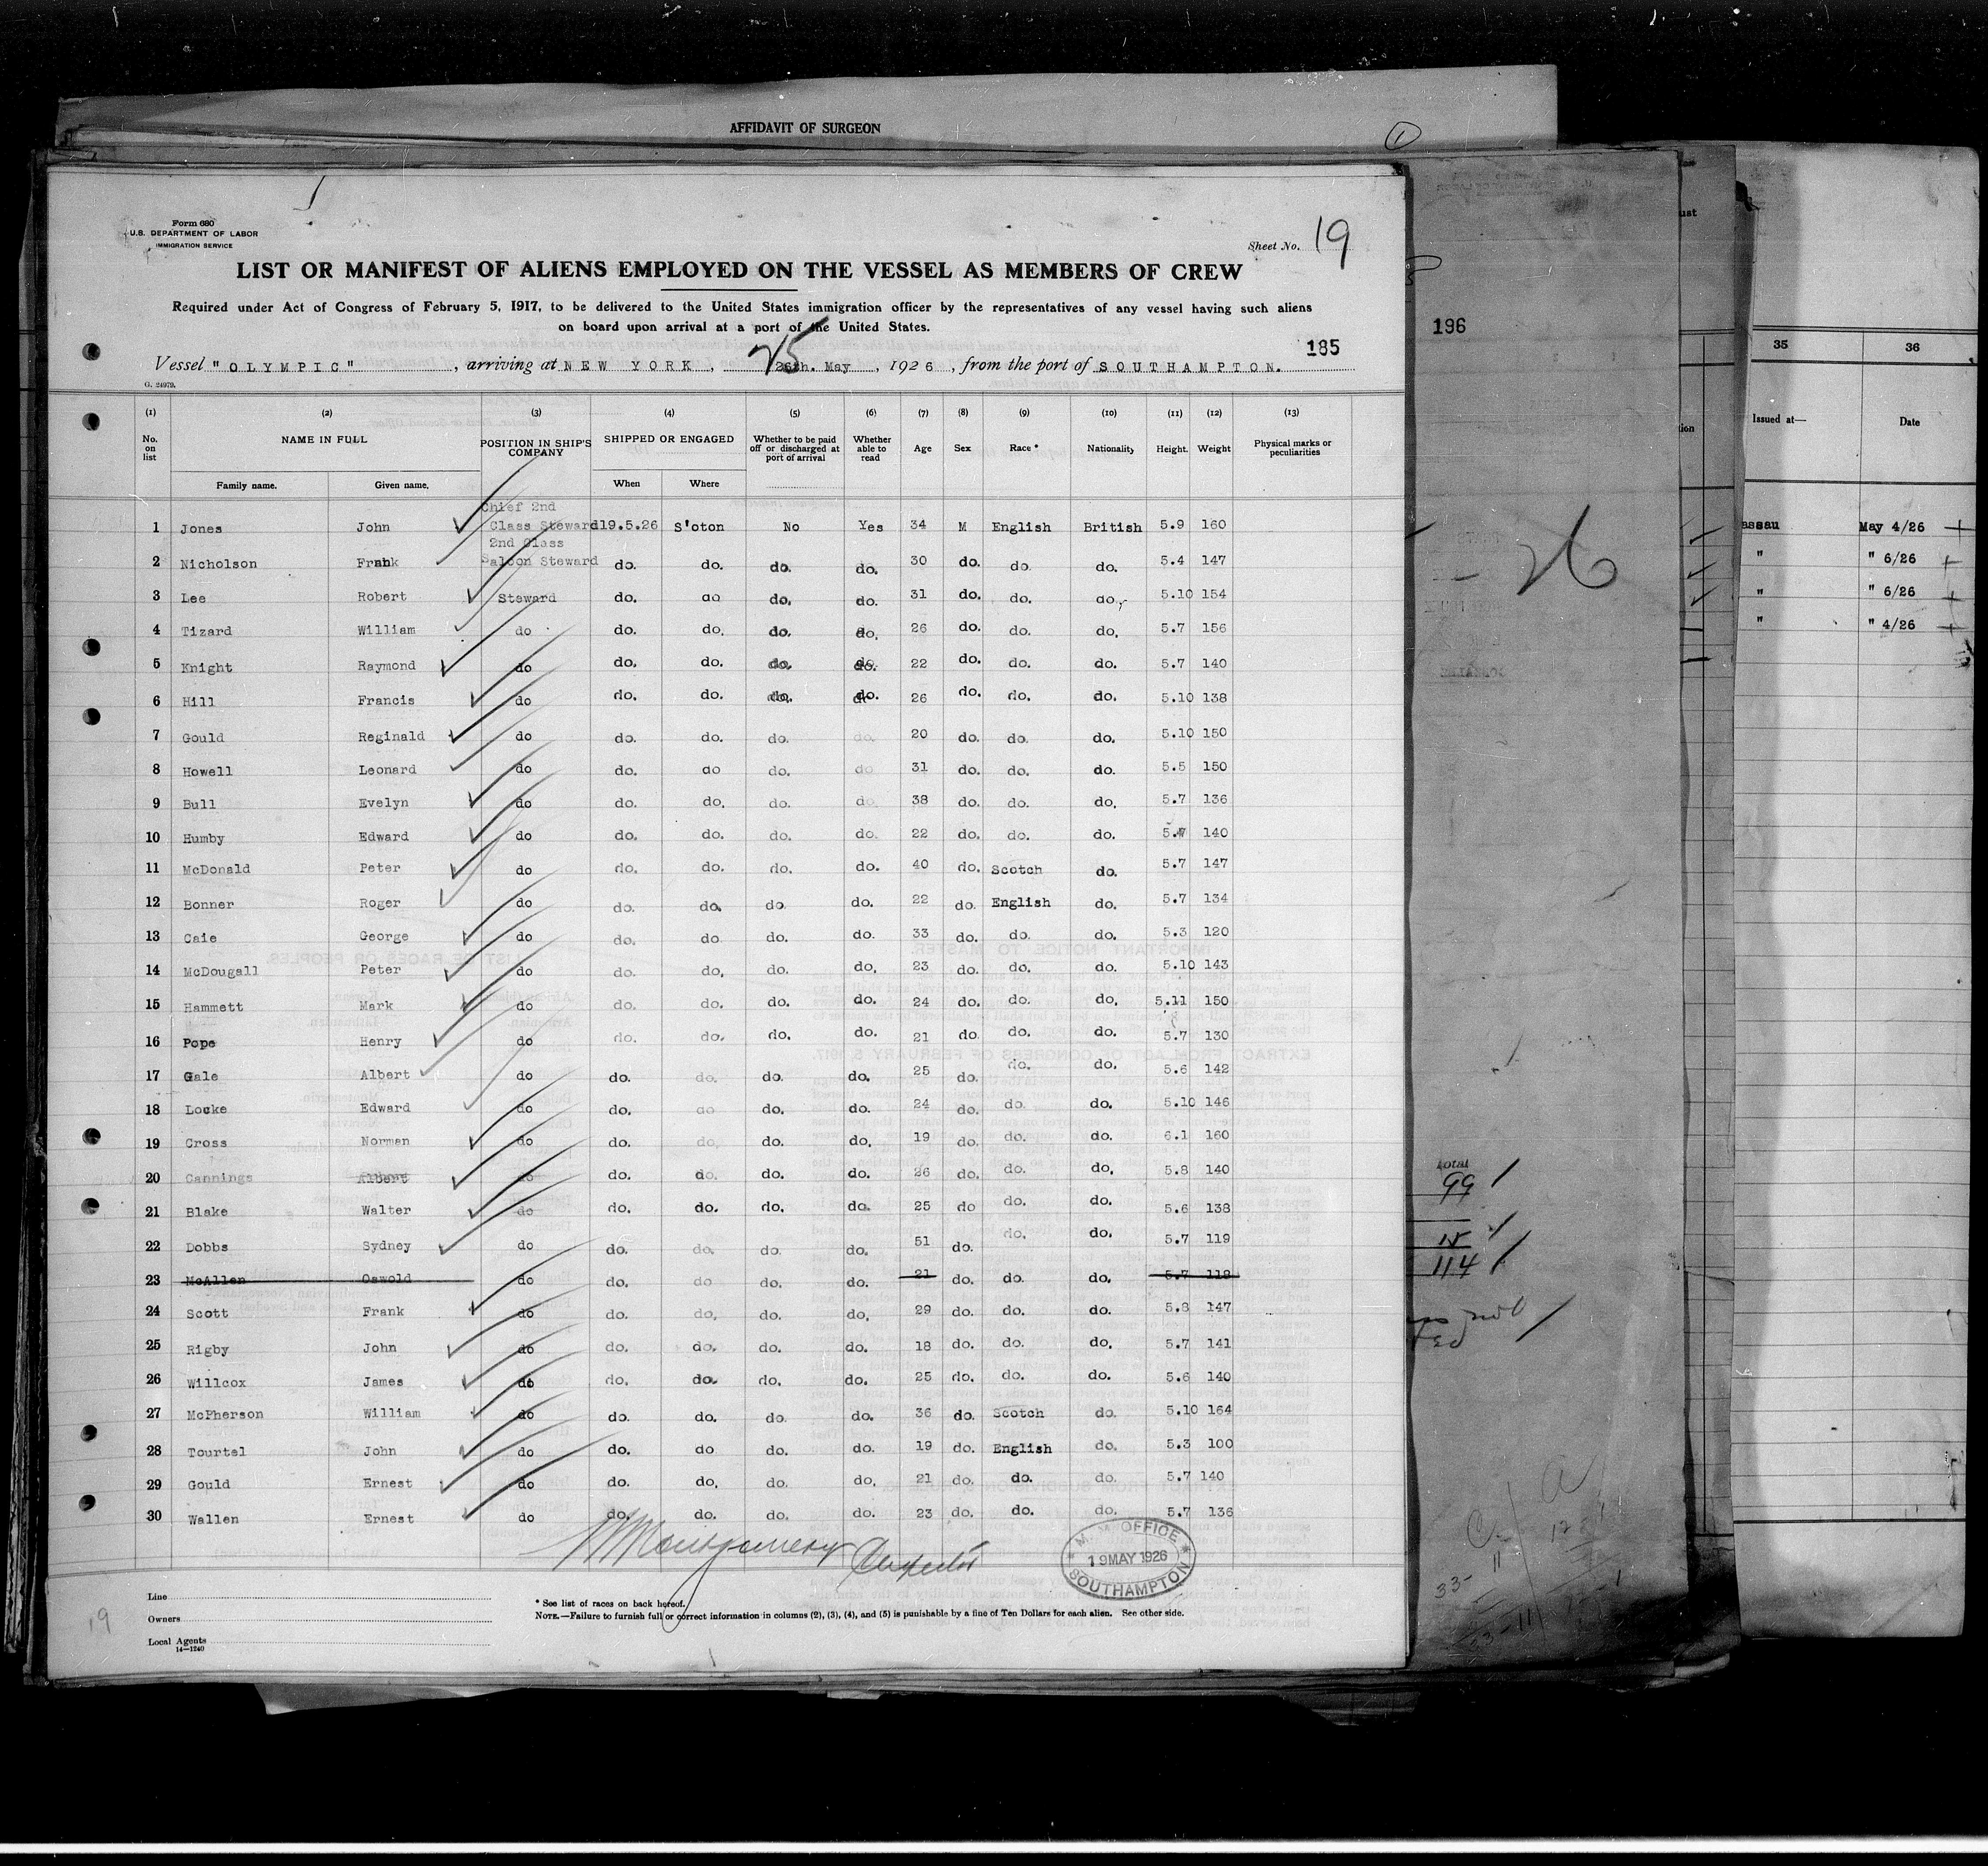 AFFIDAVIT OF SURGEON
1
Form 680
U.S. DEPARTMENT OF LABOR
IMMIGRATION SERVICE
Sheet No. 19
LIST OR MANIFEST OF ALIENS EMPLOYED ON THE VESSEL AS MEMBERS OF CREW
Required under Act of Congress of February 5, 1917, to be delivered to the United States immigration officer by the representatives of any vessel having such aliens
on board upon arrival at a port of the United States.
185
25
Vessel "OLYMPIC", arriving at NEW YORK, 26th. May, 1926, from the port of SOUTHAMPTON.
G. 24979.
(1) (2) (3) (4) (5) (6) (7) (8) (9) (10) (11) (12) (13)
No. on list NAME IN FULL POSITION IN SHIP'S COMPANY SHIPPED OR ENGAGED Whether to be paid off or discharged at port of arrival Whether able to read Age Sex Race * Nationality Height. Weight Physical marks or peculiarities
Family name. Given name. When Where
1 Jones John Chief 2nd Class Steward 19.5.26 S'oton No Yes 34 M English British 5.9 160
2 Nicholson Frank 2nd Class Saloon Steward do. do. do. do. 30 do. do. do. 5.4 147
3 Lee Robert Steward do. do do. do. 31 do. do. do. 5.10 154
4 Tizard William do do. do. do. do. 26 do. do. do. 5.7 156
5 Knight Raymond do do. do. do. do. 22 do. do. do. 5.7 140
6 Hill Francis do do. do. do. do. 26 do. do. do. 5.10 138
7 Gould Reginald do do. do. do. do. 20 do. do. do. 5.10 150
8 Howell Leonard do do. do do. do 31 do. do. do. 5.5 150
9 Bull Evelyn do do. do. do. do. 38 do. do. do. 5.7 136
10 Humby Edward do do. do. do. do. 22 do. do. do. 5.7 140
11 McDonald Peter do do. do. do. do. 40 do. Scotch do. 5.7 147
12 Bonner Roger do do. do. do. do. 22 do. English do. 5.7 134
13 Caie George do do. do do. do. 33 do. do. do. 5.3 120
14 McDougall Peter do do. do. do. do. 23 do. do. do. 5.10 143
15 Hammett Mark do do. do. do. do. 24 do. do. do. 5.11 150
16 Pope Henry do do. do. do. do. 21 do. do. do. 5.7 130
17 Gale Albert do do. do. do. do. 25 do. do. do. 5.6 142
18 Locke Edward do do. do do. do. 24 do. do. do. 5.10 146
19 Cross Norman do do. do. do. do. 19 do. do. do. 6.1 160
20 Cannings Albert do do. do. do. do. 26 do. do. do. 5.8 140
21 Blake Walter do do. do. do. do. 25 do do. do. 5.6 138
22 Dobbs Sydney do do. do. do. do. 51 do. do. do. 5.7 119
23 McAllen Oswold do do. do do. do. 21 do. do. do. 5.7 118
24 Scott Frank do do. do. do. do. 29 do. do. do. 5.8 147
25 Rigby John do do. do. do. do. 18 do. do. do. 5.7 141
26 Willcox James do do. do. do. do. 25 do. do. do. 5.6 140
27 McPherson William do do. do. do. do. 36 do. Scotch do. 5.10 164
28 Tourtel John do do. do do. do. 19 do. English do. 5.3 100
29 Gould Ernest do do. do. do. do. 21 do. do. do. 5.7 140
30 Wallen Ernest do do. do. do. do. 23 do. do. do. 5.7 136
Montgomery
OFFICE
19 MAY 1926
SOUTHAMPTON
Line
Owners
Local Agents
14—1240
* See list of races on back hereof.
NOTE.—Failure to furnish full or correct information in columns (2), (3), (4), and (5) is punishable by a fine of Ten Dollars for each alien. See other side.
19
196
26
total
99
15
114
35 36
Issued at— Date
assau May 4/26
" " 6/26
" " 6/26
" " 4/26